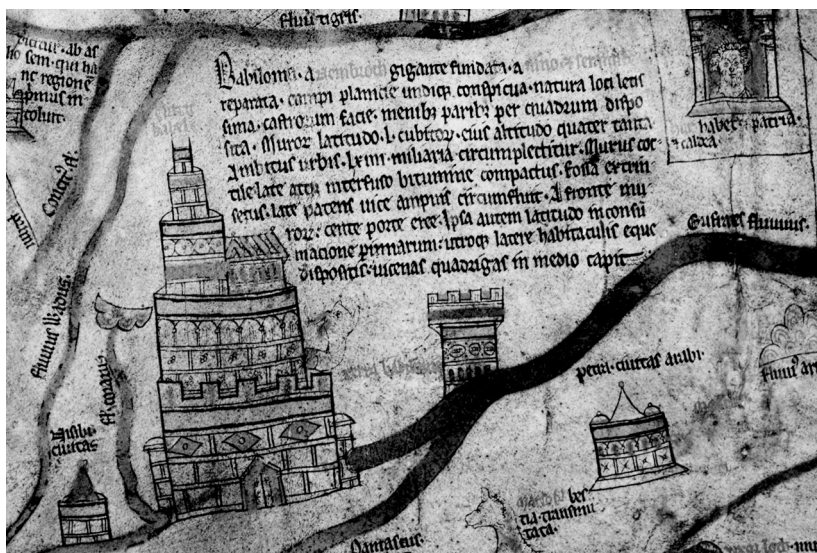 fluu tigris·
pticur· ab as
ho sem· qui ha
nc regionē
pmus in
coluit·
Babilonia· a Nembroth gigante fundata· a
reparata· campi planicie undiq; conspicua· natura loci letis
sima· castrorum facie· menibꝫ paribꝫ per quadrum dispo
sita· Muroꝝ latitudo· l· cubitoꝝ· eius altitudo quater tanta
Ambitus urbis· lxiiii· miliaria circumplectitur· Murus coc
tile late atq; interfuso bitumine compactus· fossa extrin
secus· late patens uice ampnis circumfluit· A fronte mu
roꝝ: cente porte eree· Ipsa autem latitudo in consu
macione pinnarum: utroq; latere habitaculis eque
dispositis· uicenas quadrigas in medio capit
habet· patria·
caldea·
Eufrates fluuius·
fluuius
Nisibi
ciuitas
petri· ciuitas arabi·
fluuiꝰ ar
bes
tia· transmu
tata·
Damascus·